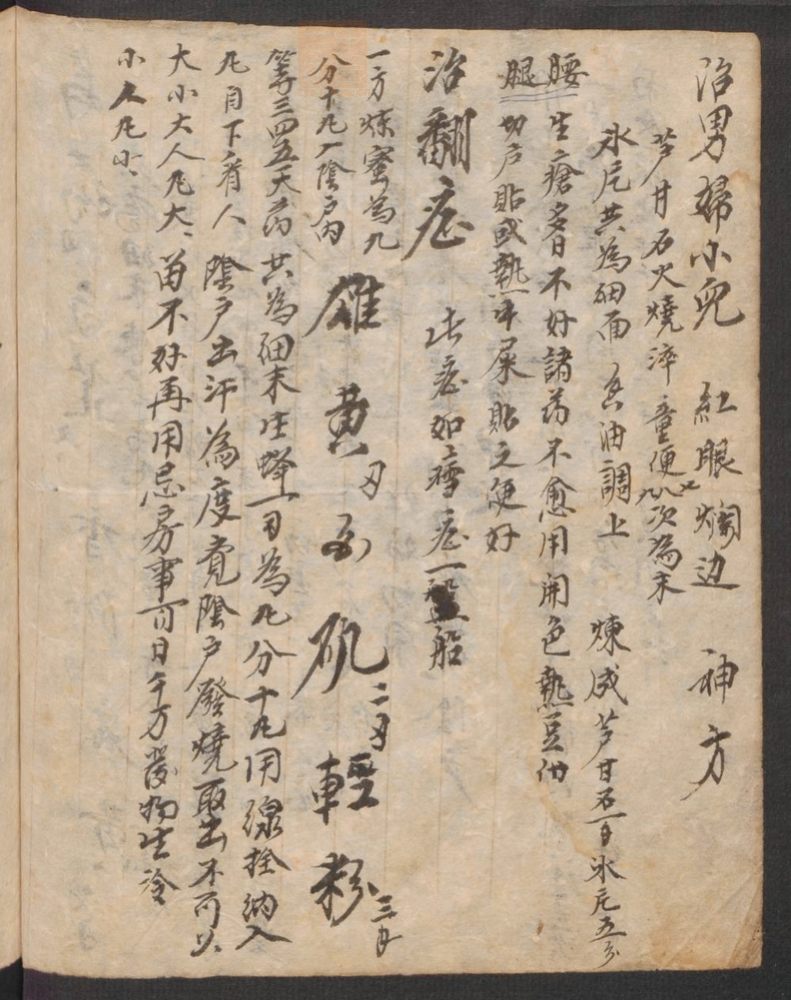 治男婦小児 紅眼爛边 神方
芦甘石火燒淬童便七八次為末
氷片共為細面 香油調上 煉成芦甘石一百氷片五分
腰 生瘡多日不好諸药不愈用開色熱豆付
腿 切户貼或熱牛屎貼之便好
治翻症 此症如瘴症一般船
一方煉蜜為丸 雄黄 白矾二 輕粉三
分十丸入陰户内
等三四五天药 共為細末庄蜂一 為丸分十丸用線拴納入
丸自下看人 陰户出汗為度竟陰户發燒取出不可以
大小大人丸大、苗不好再用忌房事百日千万發物生冷
小人丸小、